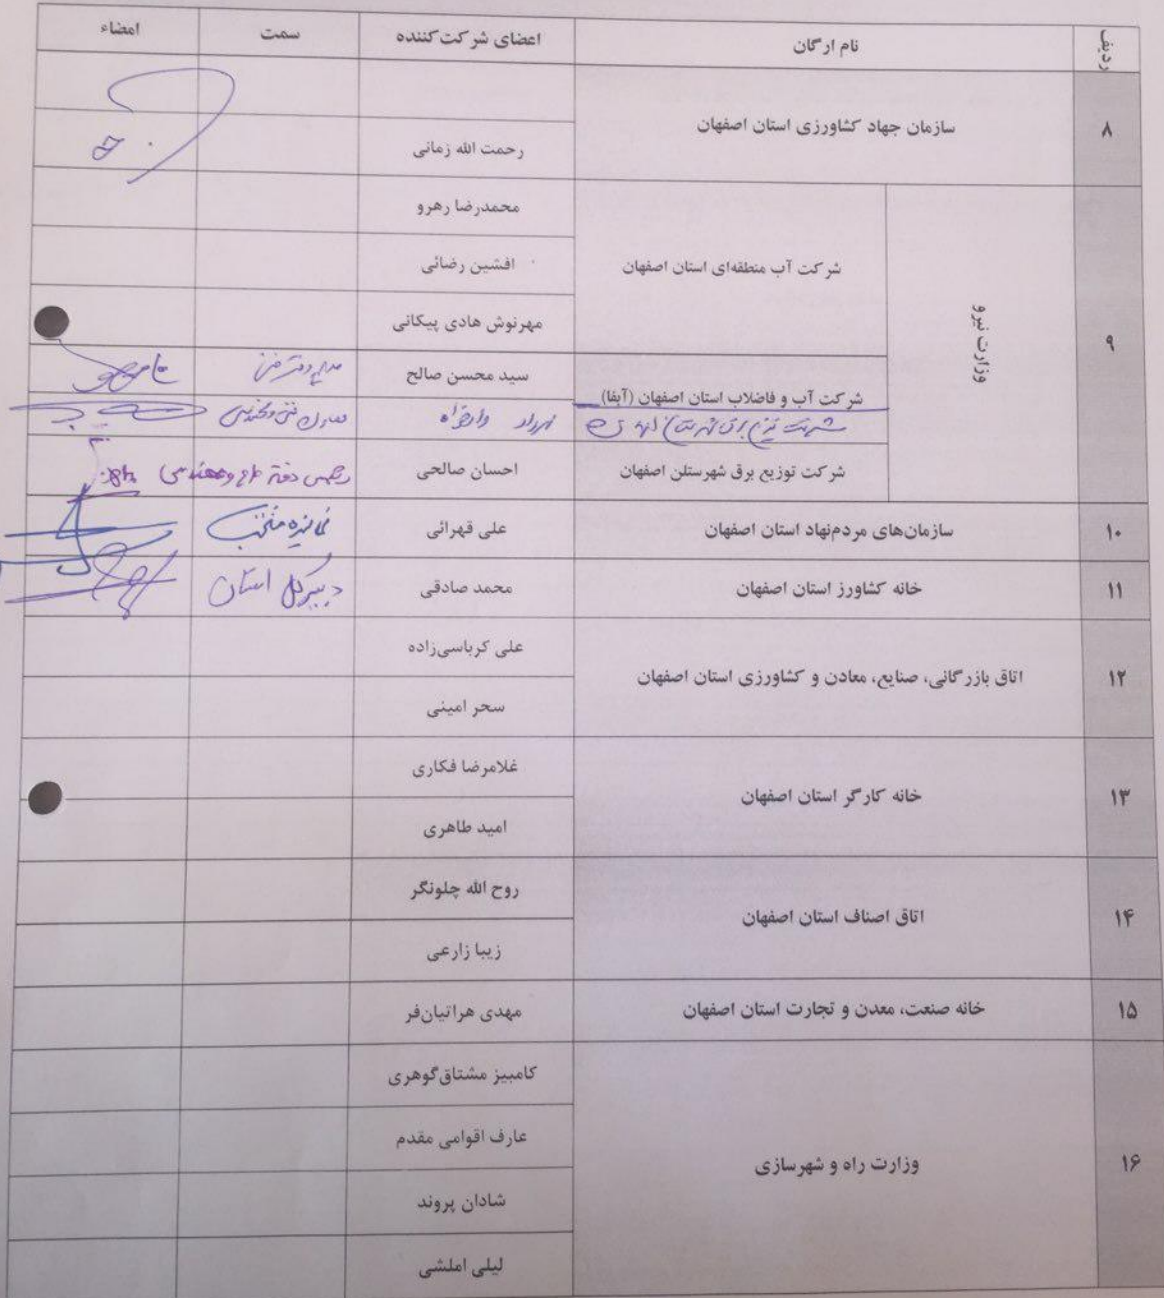 ردیف نام ارگان اعضای شرکت‌کننده سمت امضاء
۸ سازمان جهاد کشاورزی استان اصفهان
رحمت الله زمانی
۹ وزارت نیرو
شرکت آب منطقه‌ای استان اصفهان
محمدرضا رهرو
افشین رضائی
مهرنوش هادی پیکانی
شرکت آب و فاضلاب استان اصفهان (آبفا) سید محسن صالح مدیر دفتر فنی
شرکت توزیع برق شهرستان اصفهان مهرداد معاون فنی و مهندسی
شرکت توزیع برق شهرستلن اصفهان احسان صالحی رئیس دفتر طرح و مهندسی
۱۰ سازمان‌های مردم‌نهاد استان اصفهان علی قهرائی نماینده منتخب
۱۱ خانه کشاورز استان اصفهان محمد صادقی دبیر کل استان
۱۲ اتاق بازرگانی، صنایع، معادن و کشاورزی استان اصفهان
علی کرباسی‌زاده
سحر امینی
۱۳ خانه کارگر استان اصفهان
غلامرضا فکاری
امید طاهری
۱۴ اتاق اصناف استان اصفهان
روح الله چلونگر
زیبا زارعی
۱۵ خانه صنعت، معدن و تجارت استان اصفهان مهدی هراتیان‌فر
۱۶ وزارت راه و شهرسازی
کامبیز مشتاق‌گوهری
عارف اقوامی مقدم
شادان پروند
لیلی املشی